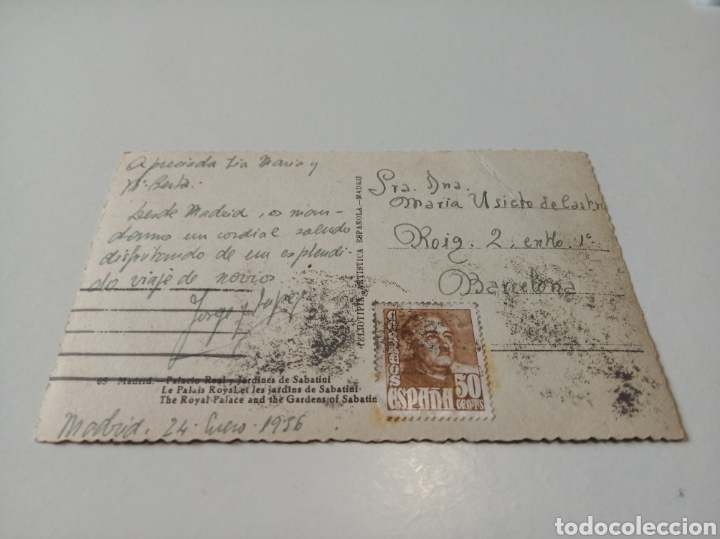 Apreciada tía María y
Mª Berta:
Desde Madrid, os man-
damos un cordial saludo
disfrutando de un esplendi-
do viaje de novios
Jorge y
65 Madrid.—Palacio Real y Jardines de Sabatini
Le Palais Royal et les jardins de Sabatini
The Royal Palace and the Gardens of Sabatin
Madrid. 24 Enero-1956
ARTISTICA ESPAÑOLA.—MADRID
Sra. Dna.
Maria Usicto de Castro
Roig. 2, entlo. 1ª
Barcelona
CORREOS
ESPAÑA
50
CENTMS
todocoleccion